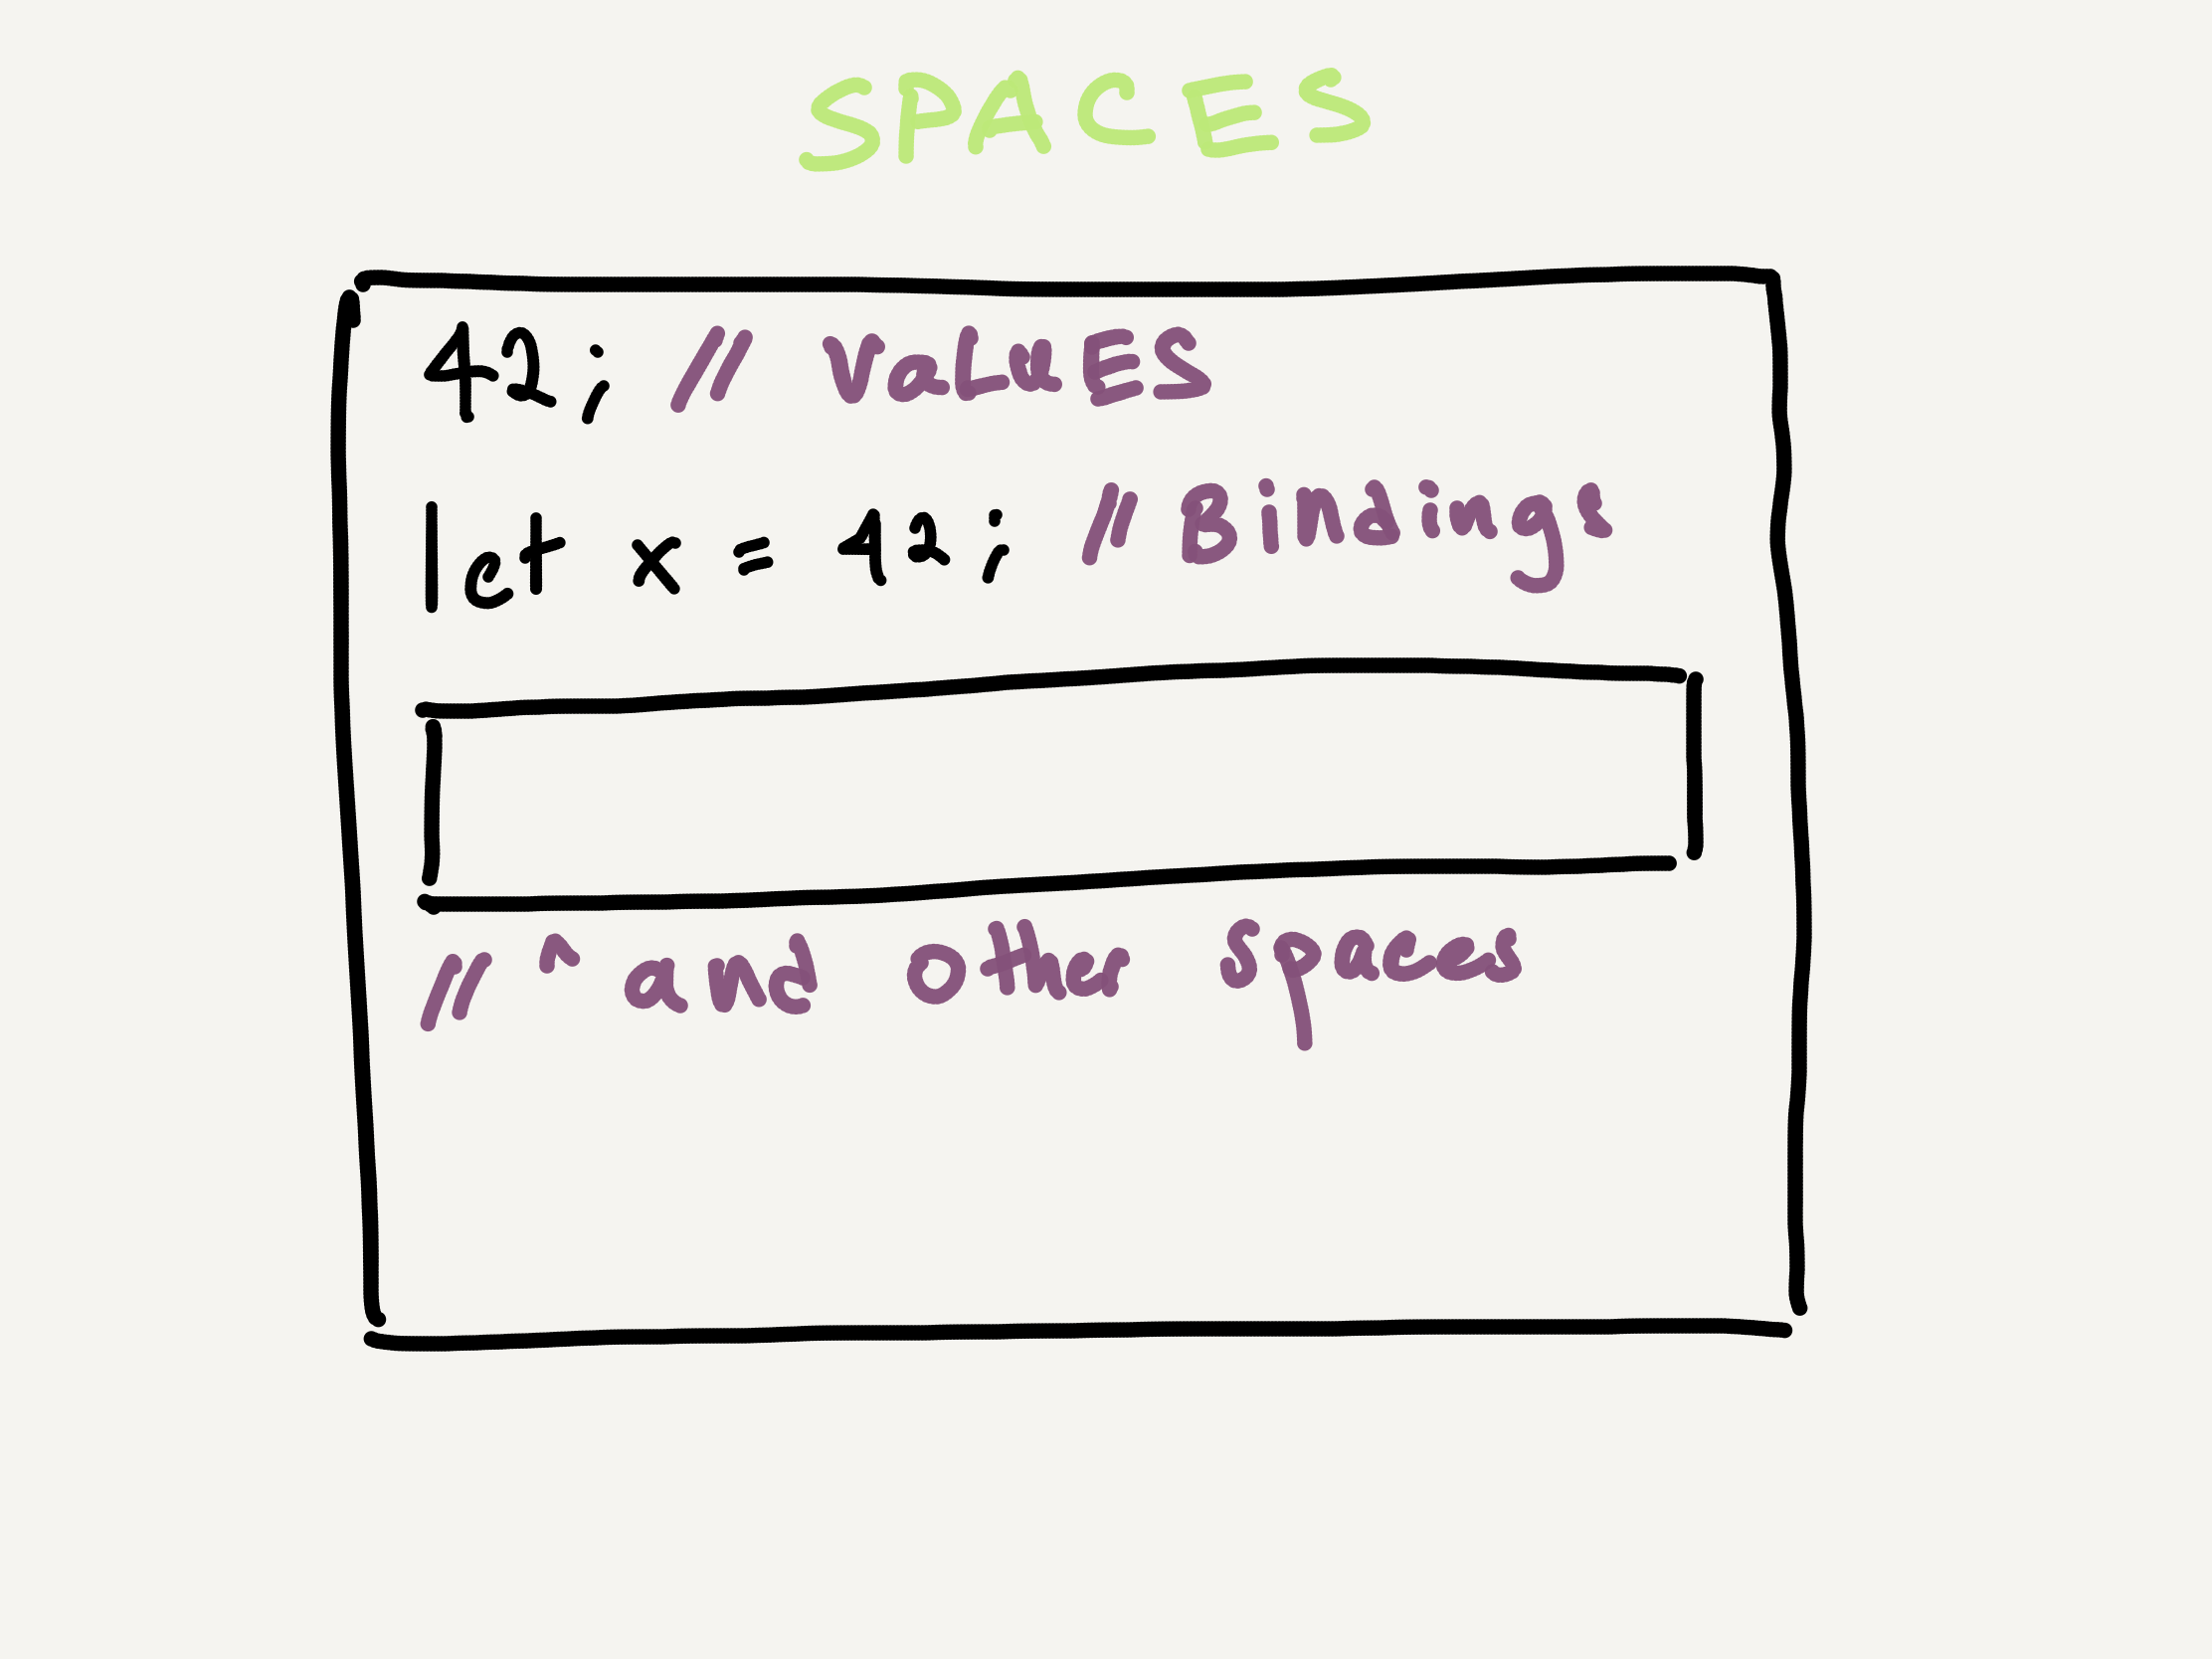 SPACES
42; // VaLuES
let x = 42; // Bindings
// ^ and other spaces